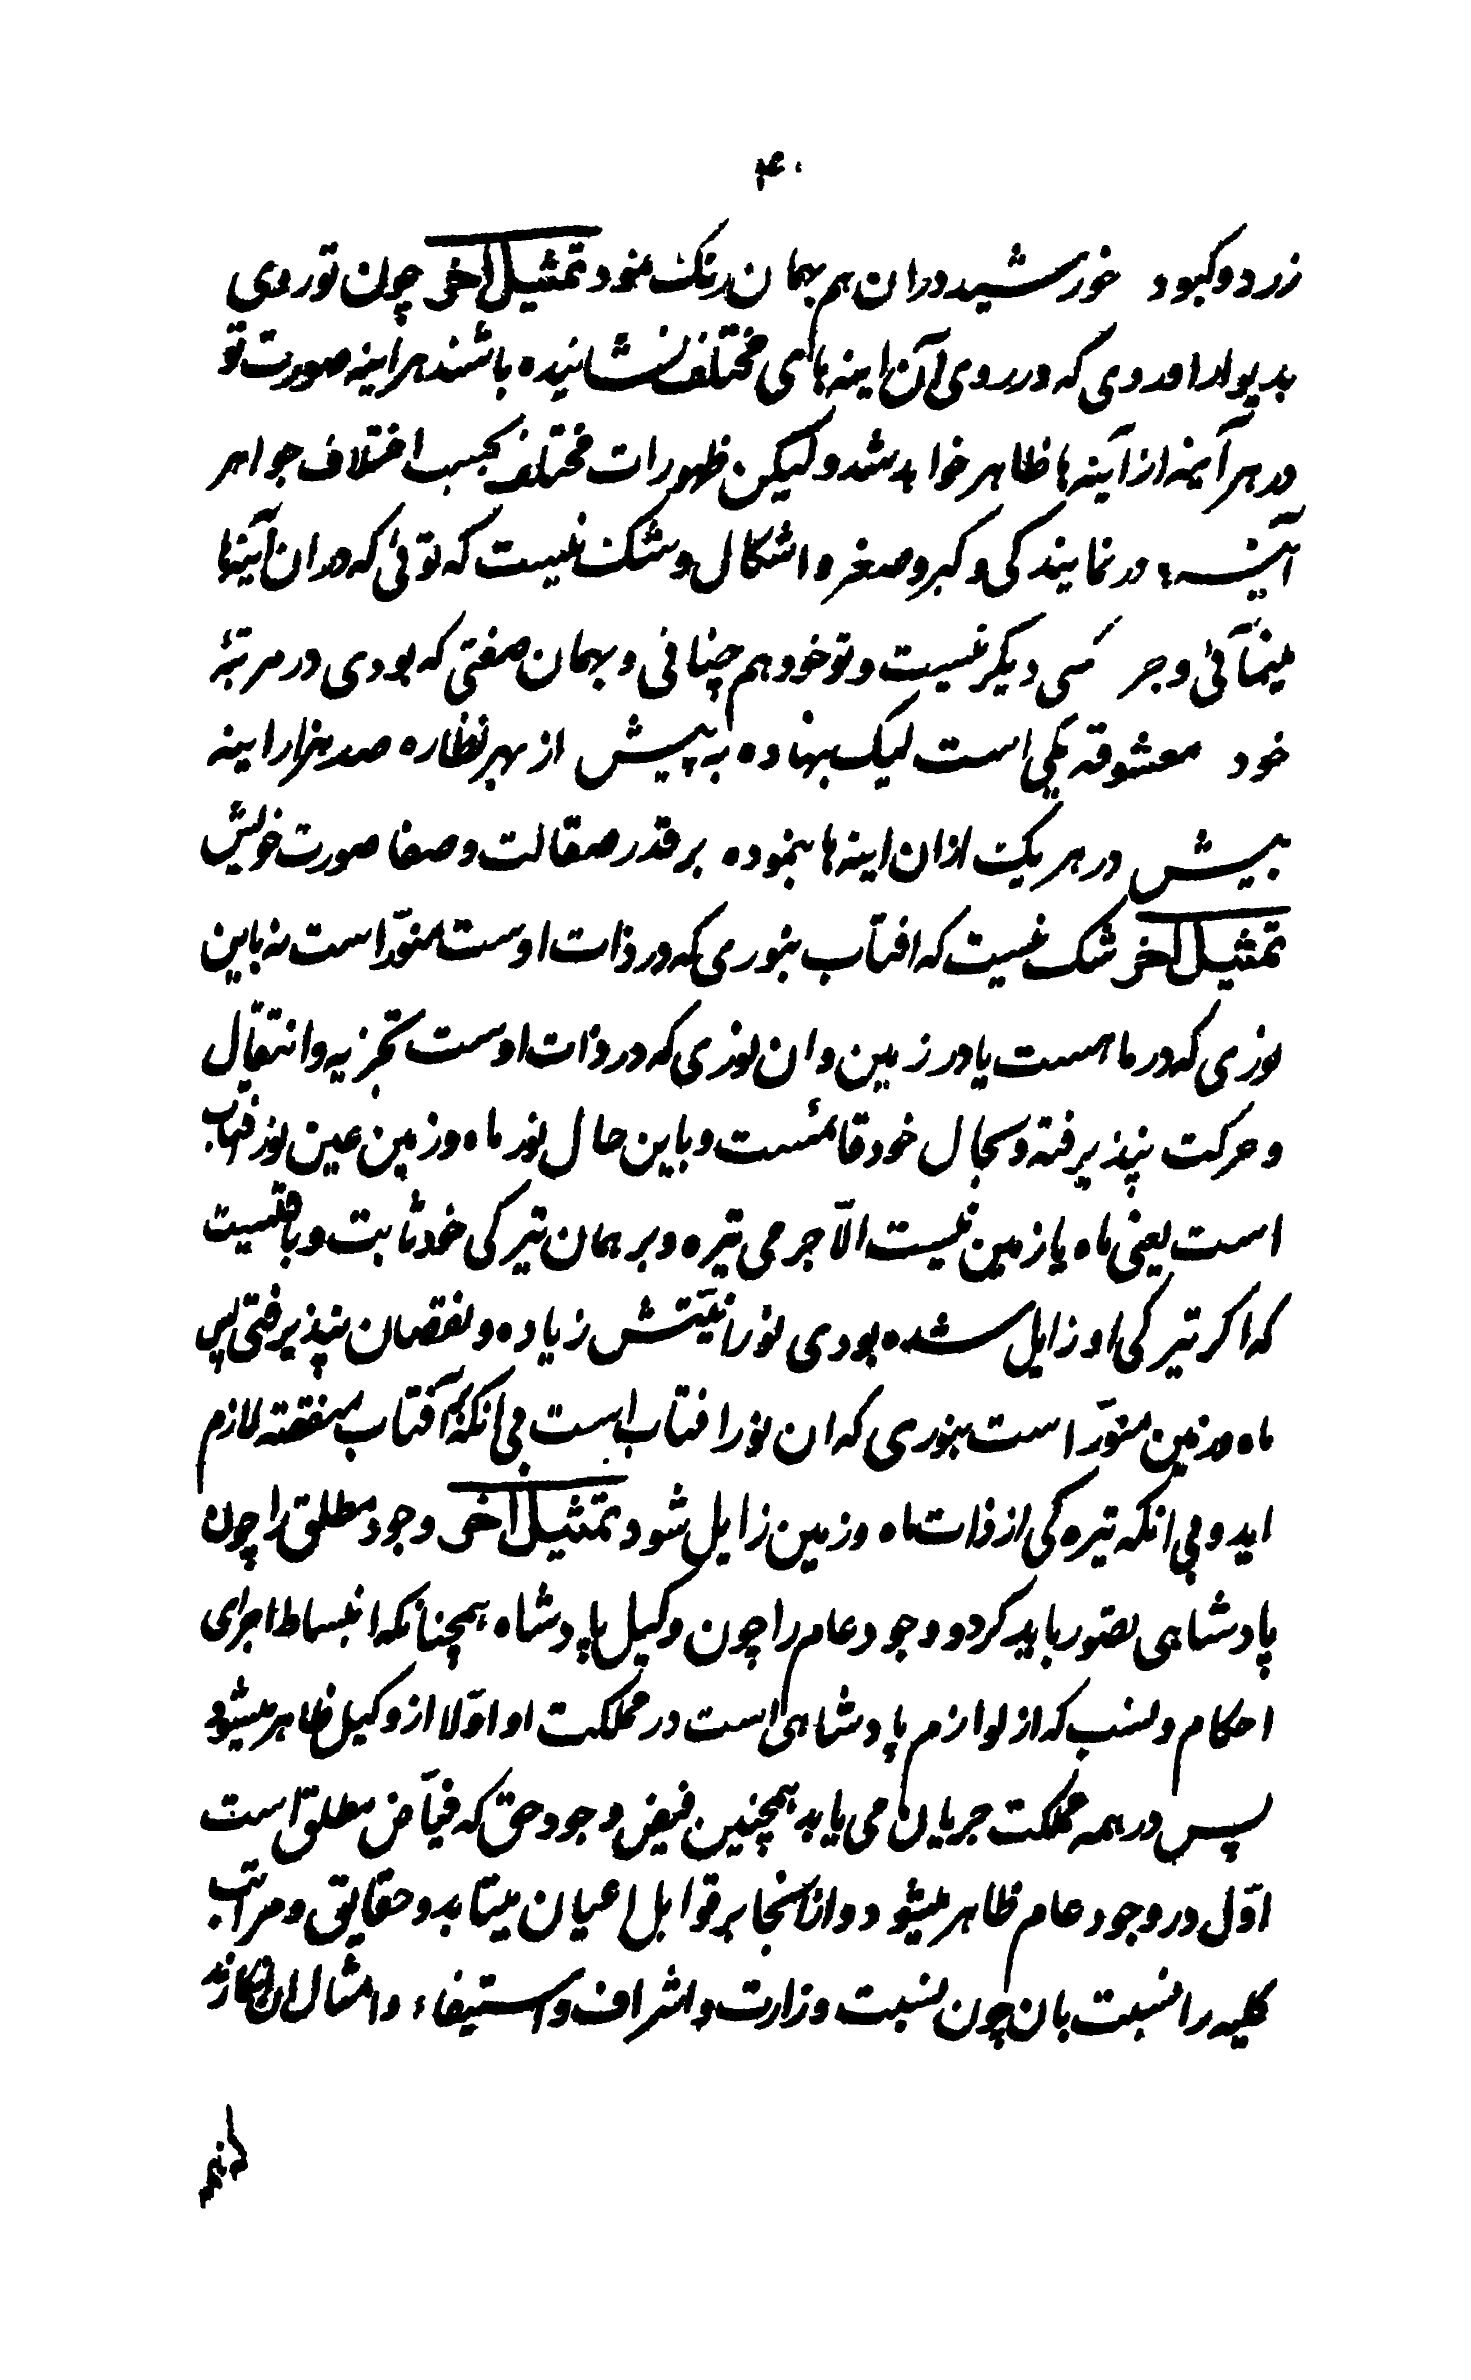 ۴۰
زرد و کبود خورشید دران هم بهمان رنک نمود تمثیل اخر چون تو روی
بدیوار اوردی که در روی آن اینه های مختلف نشانیده باشند هراینه صورت تو
در هر آینه از آینه ها ظاهر خواهد شد و لیکن ظهورات مختلف بحسب اختلاف جواهر
آینه در نمایندکی و کبر و صغر و اشکال و شک نیست که توئی که دران آینها
مینمآئی و جز کسی دیکر نیست و تو خود هم چنانی و بهمان صفتی که بودی در مرتبهٔ
خود معشوقه یکی است لیک بنهاده به پیش از بهر نظاره صد هزار اینه
بیش در هر یک ازان اینه ها بنموده بر قدر صقالت و صفا صورت خویش
تمثیل اخر شک نیست که افتاب بنوری که در ذات اوست منوّر است نه باین
نوری که در ماهست یا در زمین و ان نوری که در ذات اوست تجزیه و انتقال
و حرکت نپذیرفته و بحال خود قائمست و باین حال نور ماه و زمین عین نور افتاب
است یعنی ماه یا زمین نیست الّا جرمی تیره و بر همان تیرکی خود ثابت و باقیست
که اکر تیرکی او زایل شده بودی نورانیّتش زیاده و نقصان نپذیرفتی پس
ماه و زمین منوّر است بنوری که ان نور افتاب است بی انکه بآفتاب منقصته لازم
اید و بی انکه تیره کی از ذات ماه و زمین زایل شود تمثیل اخر وجود مطلق را چون
پادشاهی تصّور باید کرد و وجود عام را چون وکیل پادشاه همچنانکه انبساط اجرای
احکام و نسب که از لوازم پادشاهی است در مملکت او اوّلا از وکیل ظاهر میشود
پس در همه مملکت جریان می یابد همچنین فیض وجود حق که فیّاض مطلق است
اوّل در وجود عام ظاهر میشود و ازانجا بر قوابل اعیان میتابد و حقایق و مراتب
کلیه را نسبت بان چون نسبت وزارت و اشراف و استیفاء و امثال ان انکارند